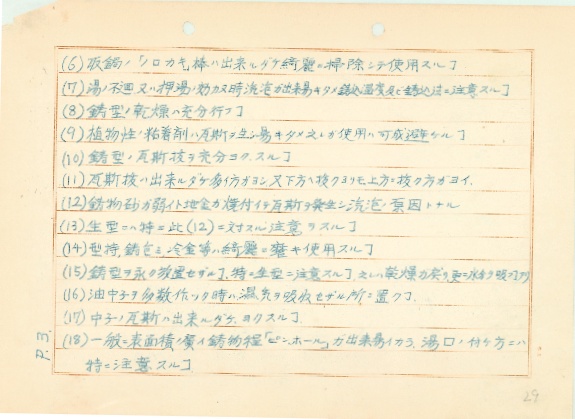 (6) 板鋳ノ「ソロカ」気棒ハ出来ルダケ綺麗ニ掃除シテ使用スルヿ
(7) 湯ノ不廻又ハ押湯ノ効カヌ時汽泡ガ出来易キタメ鋳込温度及ビ鋳込法ニ注意スルヿ
(8) 鋳型ノ乾燥ハ充分行フヿ
(9) 植物性ノ粘着剤ハ瓦斯ヲ生ジ易キタメ之レガ使用ハ可成避ケルヿ
(10) 鋳型ノ瓦斯抜ヲ充分ヨクスルヿ
(11) 瓦斯抜ハ出来ルダケ多イ方ガヨシ又下方ヘ抜クヨリモ上方ニ抜ク方ガヨイ.
(12) 鋳物砂ガ弱イト地金ガ焼付イテ瓦斯ヲ発生シ汽泡ノ原因トナル
(13) 生型ニハ特ニ此(12)ニ対スル注意ヲスルヿ
(14) 型持、鋳包ミ、冷金等ハ綺麗ニ磨キ使用スルヿ
(15) 鋳型ヲ永ク放置セザルヿ、特ニ生型ニ注意スルヿ之レハ
(16) 油中子ヲ多数作ツタ時ハ湿気ヲ吸収セザル所ニ置クヿ.
(17) 中子ノ瓦斯ハ出来ルダケ、ヨクスルヿ.
(18) 一般ニ表面積ノ廣イ鋳物程「ピンホール」ガ出来易イカラ、湯口ノ付ケ方ニハ
特ニ注意スルヿ
P.3.
29